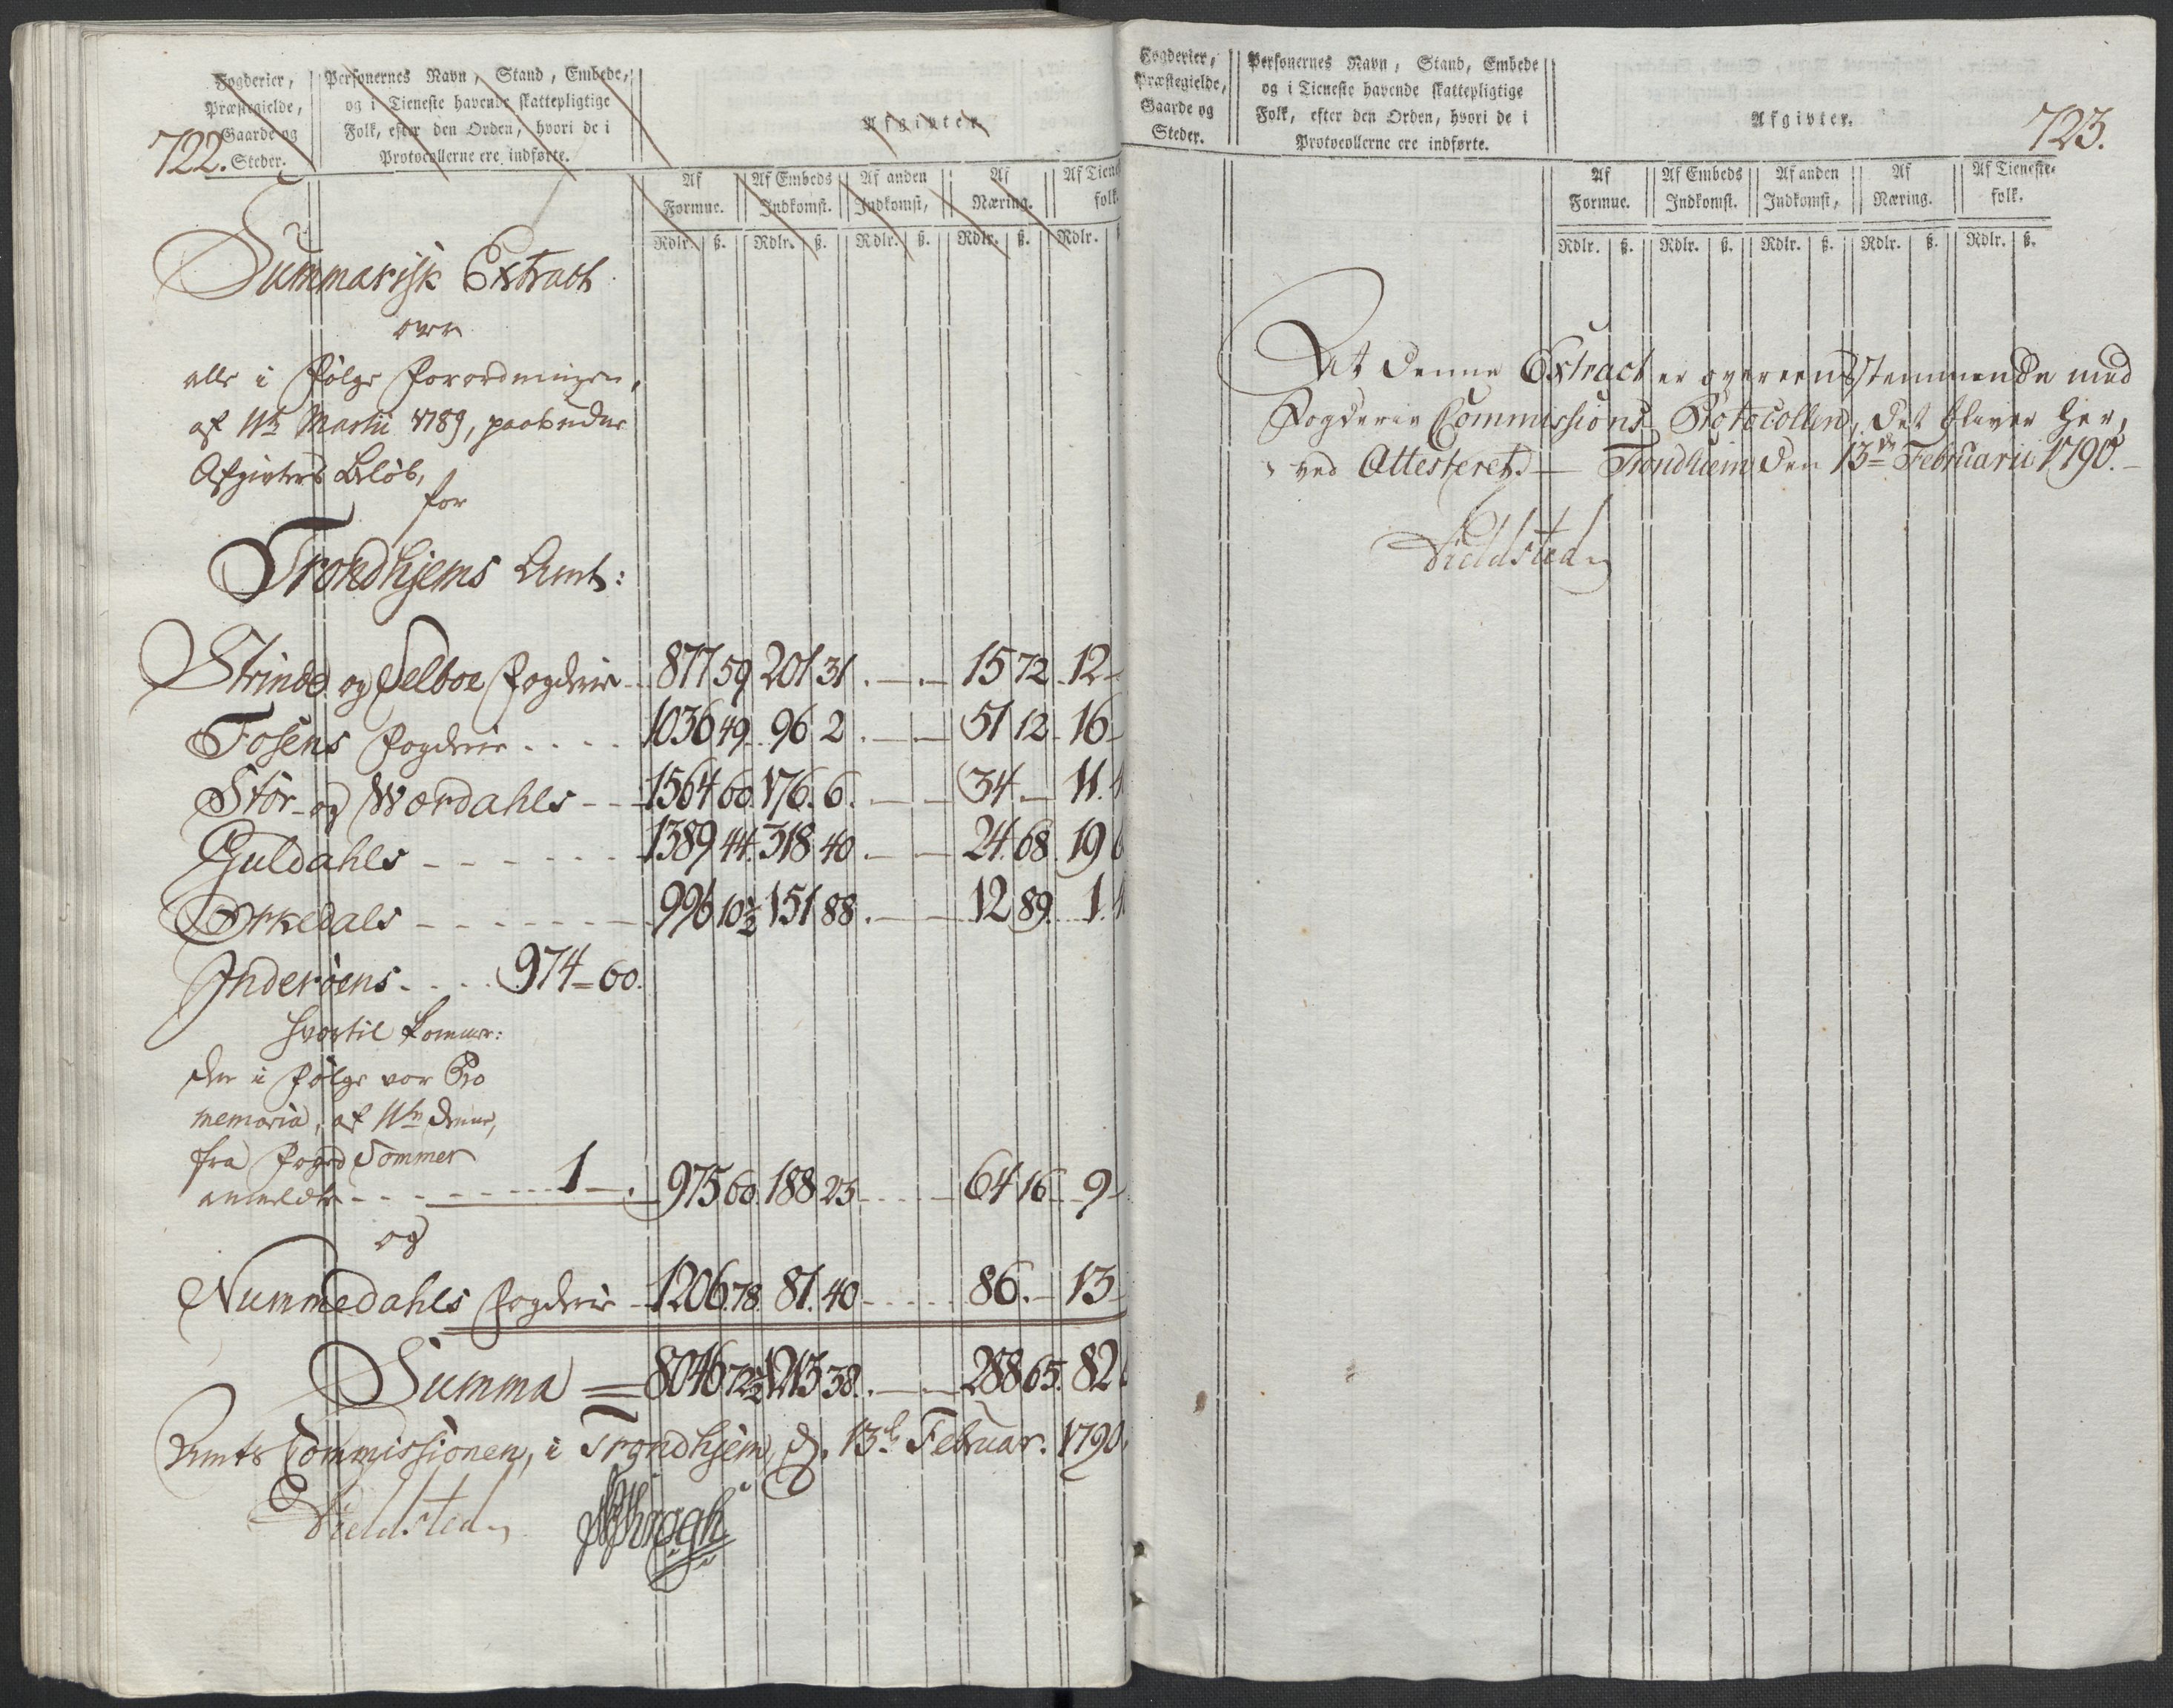 722.
Fogderier, Præstegielde, Gaarde og Steder.
Personernes Navn, Stand, Embede, og i Tieneste havende skattepligtige Folk, efter den Orden, hvori de i Protocollerne ere indførte.
Afgivter.
Af Formue. Af Embeds Indkomst. Af anden Indkomst, Af Næring. Af Tiene folk
Rdlr. ß. Rdlr. ß. Rdlr. ß. Rdlr. ß. Rdlr.
Summarisk Extract
over
alle i følge Forordningen,
af 11te Martii 1789, paabudne
Afgivters Beløb,
for
Trondhjems Amt:
Strinde og Selboe Fogderie 877 59 201 31 . — . — 15 72 12
Fosens Fogderie . . . . 1036 49 96 2 . — . — 51 12 16
Stør- og Wærdahls - - 1564 60 176. 6. . — — 34. — 11.
Guldahls - - - - - - 1389 44 318 40 . — — 24. 68 19
Orkedals - - - - - - 996 10½ 151 88 . — — 12 89. 1.
Inderøens . . . . 974 = 60.
hvortil kommer:
den i følge vor Pro
memoria, af 11te denne,
fra Foged Sommer
anmeldte - - - - - - 1 — . 975 60 188 23 - - - - 64 16 9
og
Nummedahls Fogderie - 1206 78 81. 40 - - - - 86. — 13
Summa = 8046 72½ 1213 38. . — . — 288 65. 82
Amts Commissionen, i Trondhjem, d. 13de Februar. 1790.
Dieldsted
723.
Fogderier, Præstegielde, Gaarde og Steder.
Personernes Navn, Stand, Embede og i Tieneste havende skattepligtige Folk, efter den Orden, hvori de i Protocollerne ere indførte.
Afgivter.
Af Formue. Af Embeds Indkomst. Af anden Indkomst, Af Næring. Af Tieneste- folk.
Rdlr. ß. Rdlr. ß. Rdlr. ß. Rdlr. ß. Rdlr. ß.
At denne Extract er overeensstemmende med
Fogderie Commissions Protocollen, det bliver her,
ved Attesteret. — Trondhiem den 13de Februarii 1790. —
Dieldsted